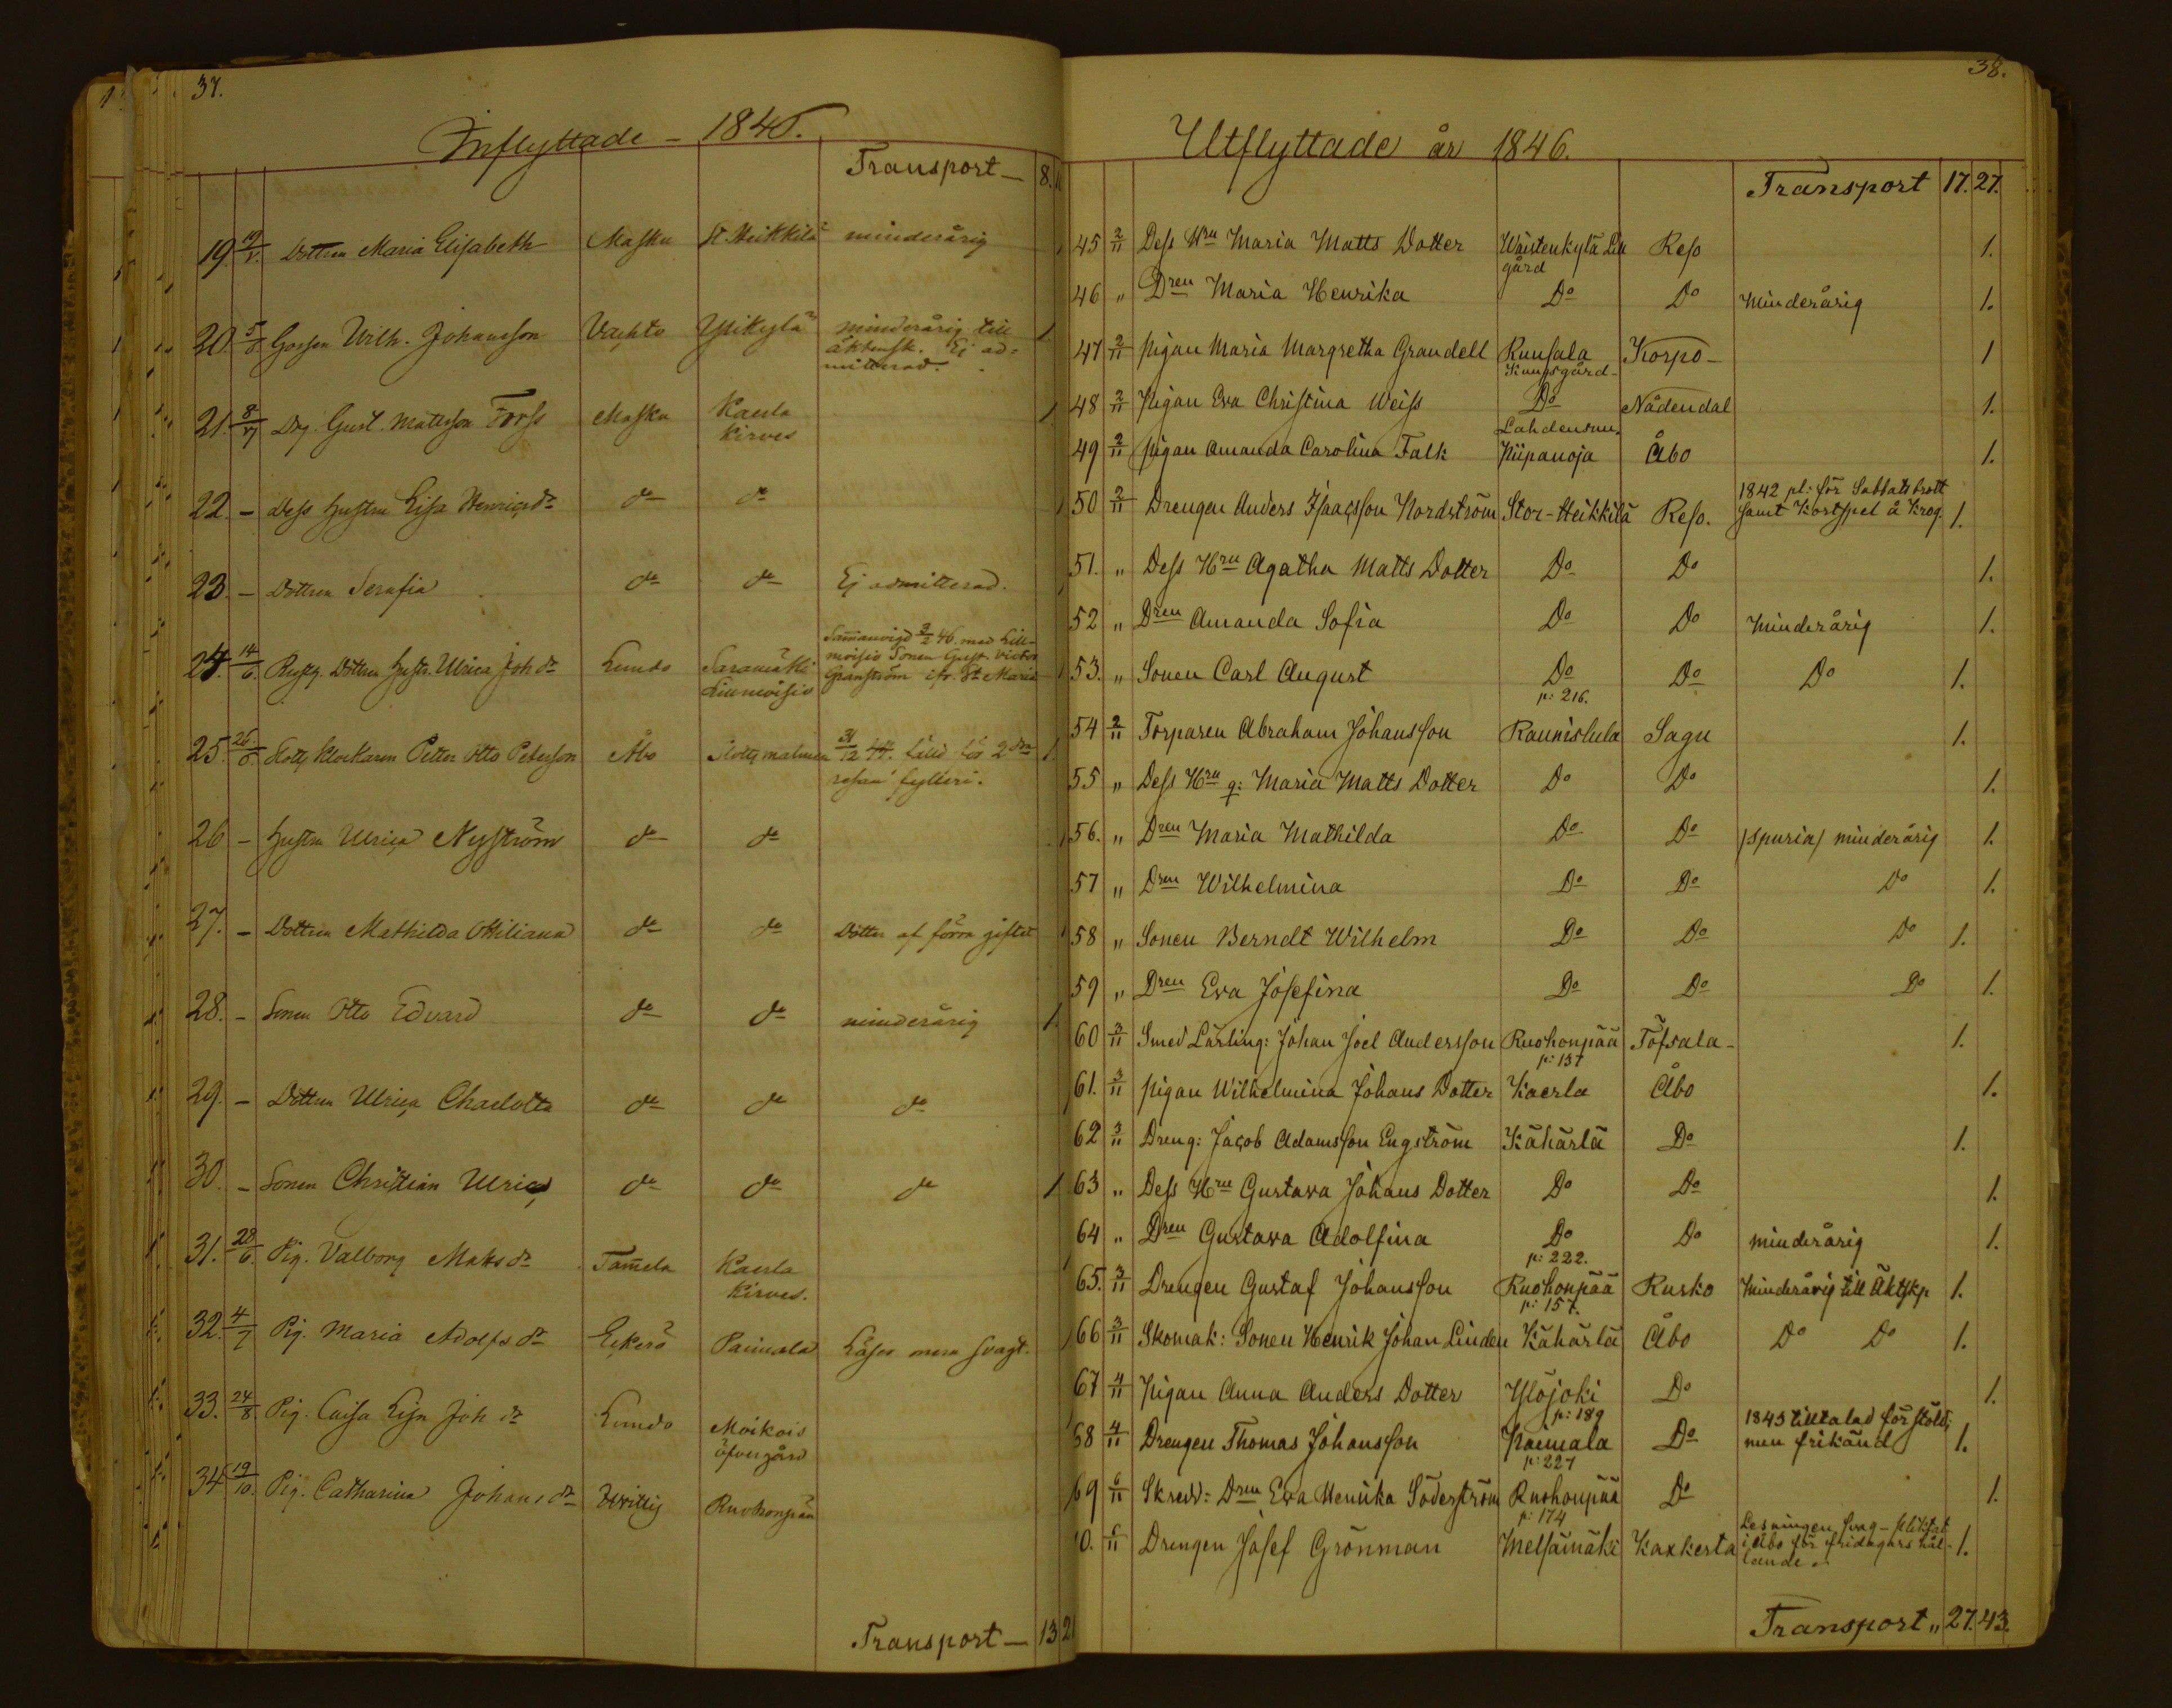 37.
Inflyttade - 1846.
Transport - 8.
19. 19/5. Dottren Maria Elisabeth Masku St. Heikkilä minderårig
20. 5/6. Gossen Wilh. Johansson Vachto Ylikylä minderårig till
äktensk. Ej ad-
mitterad.
21. 8/ Drg. Gust. Mattsson Forss Masku Kaerla
Kirves
22. - dess hustru Lisa Henricsdr do do
23. - Dottren Serafia do do Ej admitterad.
24. 14/6. Rustg. Dottren Hustr. Ulrica Joh dr Lundo Saramäki
Liinmoisio
Sammanvigd 3/2 46. med Lill-
moisio Sonen Gust. Victor
Granström ifr. St. Marie
25. 26/6. Slotts klockaren Petter Otto Peterson Åbo Slotts malmen 31/12 44. fälld för 2dra
resan fylleri.
26 - Hustru Ulrica Nyström do do
27. - Dottren Mathilda Ottiliana do do Dotter af förra giftet
28. - Sonen Otto Edvard do do minderårig
29. - Dottren Ulrica Charlotta do do do
30. - Sonen Christian Ulric do do do
31. 28/6. Pig. Valborg Matsdr Tammela Kaerla
Kirves.
32. 4/7 Pig. Maria Adolfsdr Eckerö Paimala Läser mera svagt.
33. 24/8. Pig. Caisa Lisa Joh dr Lundo Moikois
öfvergård
34 19/10. Pig. Catharina Johansdr Wittis Ruohonpää
Transport - 13 21
38.
Utflyttade år 1846.
Transport 17. 27.
45 2/11 Dess Hru Maria Matts Dotter Wäntenkylä Lill
gård Reso 1.
46 " Dren Maria Henrika Do Do Minderårig 1.
47 2/11 Pigan Maria Margretha Grandell Runsala
Kungsgård Korpo - 1
48 2/11 Pigan Eva Christina Weiss Do Nådendal 1.
49 2/11 Pigan Amanda Carolina Falk Lahdensuu
Piipanoja Åbo 1.
50 2/11 Drengen Anders Isaacsson Nordström Stor-Heikkilä Reso. 1842 pl: för Sabbatsbrott
samt Kortspel å Krog. 1.
51. " Dess Hru Agatha Matts Dotter Do Do 1.
52 " Dren Amanda Sofia Do Do Minderårig 1.
53. " Sonen Carl August Do Do Do 1.
p: 216.
54 2/11 Torparen Abraham Johansson Raunistula Sagu 1.
55 " Dess Hru q: Maria Matts Dotter Do Do 1.
56. " Dren Maria Mathilda Do Do /spuria/ minderårig 1.
57 " Dren Wilhelmina Do Do Do 1.
58 " Sonen Berndt Wilhelm Do Do Do 1.
59 " Dren Eva Josefina Do Do Do 1.
60 3/11 Smed Lärling: Johan Joel Andersson Ruohonpää Töfsala - 1.
p: 157
61. 3/11 Pigan Wilhelmina Johans Dotter Kaerla Åbo 1.
62 3/11 Dreng: Jacob Adamsson Engström Kähärlä Do 1.
63 " Dess Hru Gustava Johans Dotter Do Do 1.
64 " Dren Gustava Adolfina Do Do minderårig 1.
p: 222.
65. 3/11 Drengen Gustaf Johansson Ruohonpää Rusko Minderårig till Äktskp 1.
p: 157.
66 3/11 Skomak: Sonen Henrik Johan Linden Kähärlä Åbo Do Do 1.
67 4/11 Pigan Anna Anders Dotter Ylöjoki Do 1.
p: 189
68 4/11 Drengen Thomas Johansson Paimala Do 1845 tilltalad för stöld;
men frikänd 1.
p: 227
69 6/11 Skredd: Dren Eva Henrika Söderström Ruohonpää Do 1.
p: 174
70. 6/11 Drengen Josef Grönman Metsämäki Kaxkerta Lesningen svag - pliktat
i Åbo för fridagars hål-
lande. 1.
Transport " 27. 43.